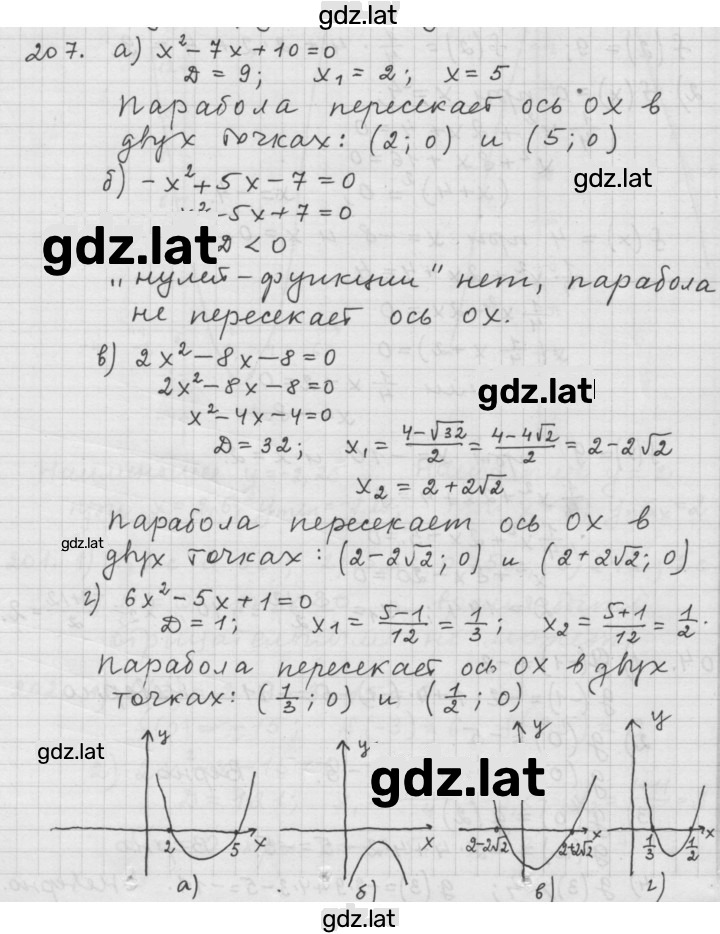 gdz.lat
207. а) x² - 7x + 10 = 0
D = 9; x₁ = 2; x = 5
Парабола пересекает ось OX в
двух точках: (2; 0) и (5; 0)
б) -x² + 5x - 7 = 0
gdz.lat
x² - 5x + 7 = 0
gdz.lat
D < 0
„нулей-функции" нет, парабола
не пересекает ось OX.
в) 2x² - 8x - 8 = 0
2x² - 8x - 8 = 0
gdz.lat
x² - 4x - 4 = 0
D = 32; x₁ = (4 - √32)/2 = (4 - 4√2)/2 = 2 - 2√2
x₂ = 2 + 2√2
Парабола пересекает ось OX в
gdz.lat
двух точках: (2 - 2√2; 0) и (2 + 2√2; 0)
г) 6x² - 5x + 1 = 0
D = 1; x₁ = (5 - 1)/12 = 1/3; x₂ = (5 + 1)/12 = 1/2.
Парабола пересекает ось OX в двух
точках: (1/3; 0) и (1/2; 0)
gdz.lat
y y y
gdz.lat
2 5 x x 2-2√2 2+2√2 x 1/3 1/2 x
а) б) в) г)
gdz.lat